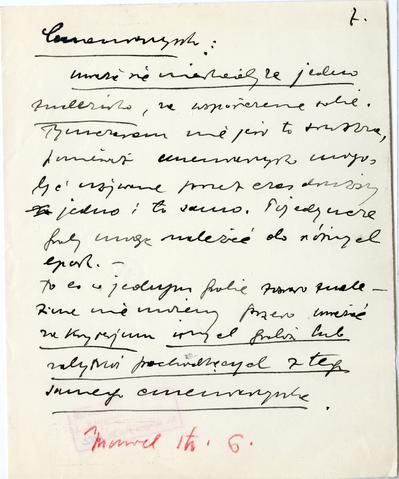 7.
Cmentarzysk:
uważa się niekiedy za jedno
znalezisko, za współczesne sobie.
Tymczasem nie jest to słuszne,
ponieważ cmentarzysko mogło
być używane przez czas dłuższy
jedno i to samo. Pojedyncze
groby mogą należeć do różnych
epok. —
To co w jednym grobie znale-
zione nie możemy przeto uważać
za kryterjum innych grobów lub
zabytków pochodzących z tego
samego cmentarzyska.
str. 6.